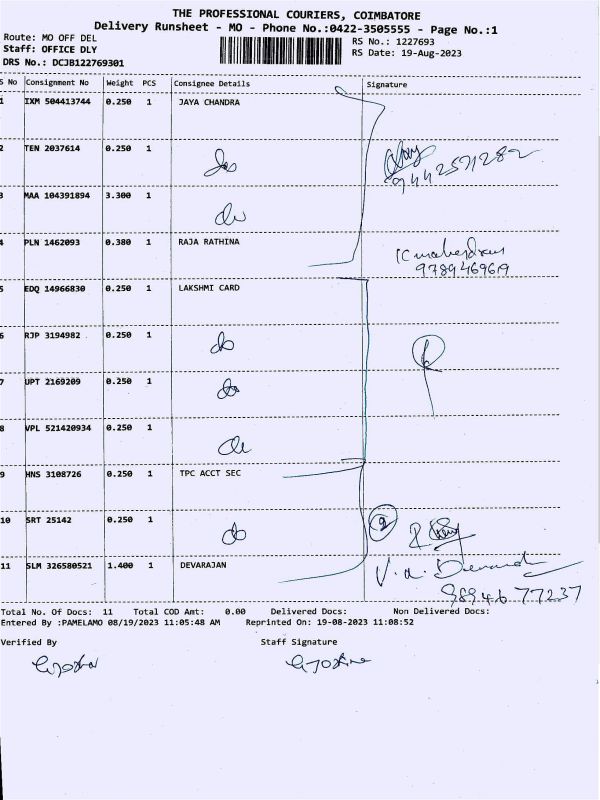 THE PROFESSIONAL COURIERS, COIMBATORE
Delivery Runsheet - MO - Phone No.:0422-3505555 - Page No.:1
Route: MO OFF DEL
RS No.: 1227693
Staff: OFFICE DLY
RS Date: 19-Aug-2023
DRS No.: DCJB122769301
S No Consignment No Weight PCS Consignee Details Signature
1 IXM 504413744 0.250 1 JAYA CHANDRA
2 TEN 2037614 0.250 1
do
9442571282
3 MAA 104391894 3.300 1
do
4 PLN 1462093 0.380 1 RAJA RATHINA
9789469619
5 EDQ 14966830 0.250 1 LAKSHMI CARD
6 RJP 3194982 0.250 1
do
7 UPT 2169209 0.250 1
do
8 VPL 521420934 0.250 1
do
9 HNS 3108726 0.250 1 TPC ACCT SEC
10 SRT 25142 0.250 1
do
11 SLM 326580521 1.400 1 DEVARAJAN
98946 77237
Total No. Of Docs: 11 Total COD Amt: 0.00 Delivered Docs: Non Delivered Docs:
Entered By :PAMELAMO 08/19/2023 11:05:48 AM Reprinted On: 19-08-2023 11:08:52
Verified By Staff Signature